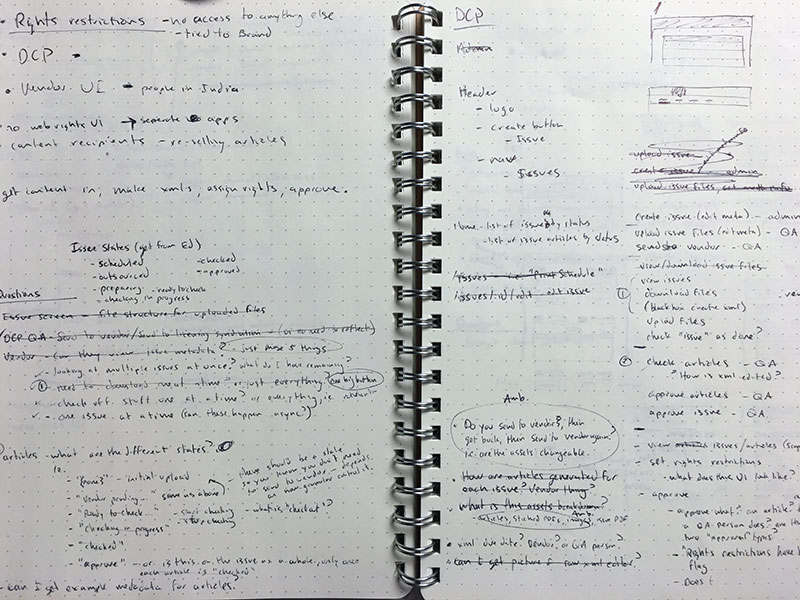 • Rights restrictions - no access to anything else
- tied to Brand
• DCP
• Vendor UI → people in India
no web rights UI → separate apps
content recipients - re-selling articles
get content in, make xmls, assign rights, approve.
Issue States (get from Ed)
- scheduled
- outsourced
- preparing - ready to check
- checking in progress
- checked
- approved
Questions
Issue screen - file structure for uploaded files
DCP QA - Send to vendor/Send to licensing syndication - (or no need to reflect)
Vendor - can they view issue metadata? - just those 5 things
- looking at multiple issues at once? what do I have remaining?
① need to download meat at time? or just everything? one big button
- check off stuff one at a time? or everything, i.e.
- one issue at a time (can these happen async?)
articles - what are the different states?
ie.
- initial upload
- "Vendor pending" - same as above?
- "Ready to check" - start checking
- "Checking in progress" - stop checking
- "checked"
- "approve" - or is this on the issue as a whole, only once
each article is "checked"
there should be a state
so you know you don't need
to send to vendor - depends
on how granular control is.
- what is "checked"?
- can I get example metadata for articles?
DCP
Admin
Header
- logo
- create button
- Issue
- nav
- Issues
Home - list of issues by status
- list of issue articles by status
/issues - i.e. "Print Schedule"
/issues/:id/edit - edit issue
Amb.
• Do you send to vendor, then
get back, then send to vendor again?
i.e. are the assets changeable.
• How are articles generated for
each issue? Vendor thing?
• what is this assets breakdown?
Amb.
- Articles, stitched PDFs, images, issue PDF
• xml due date? Vendor, or QA person?
• can I get picture of raw xml editor?
upload issue
create issue - admin
upload issue files,
create issue (edit meta) - admin
upload issue files (edit meta) - QA
send to vendor - QA
view/download issue files
view issues
① download files
(black box create xml)
upload files
check "issue" as done?
② check articles - QA
"How is xml edited?
approve articles - QA
approve issue - QA
- view articles issues/articles
- set rights restrictions
- what does this UI look like?
- approve
- approve what? an article?
a QA person does? are the
two "approval types"?
- "Rights restrictions have
flag
- Does